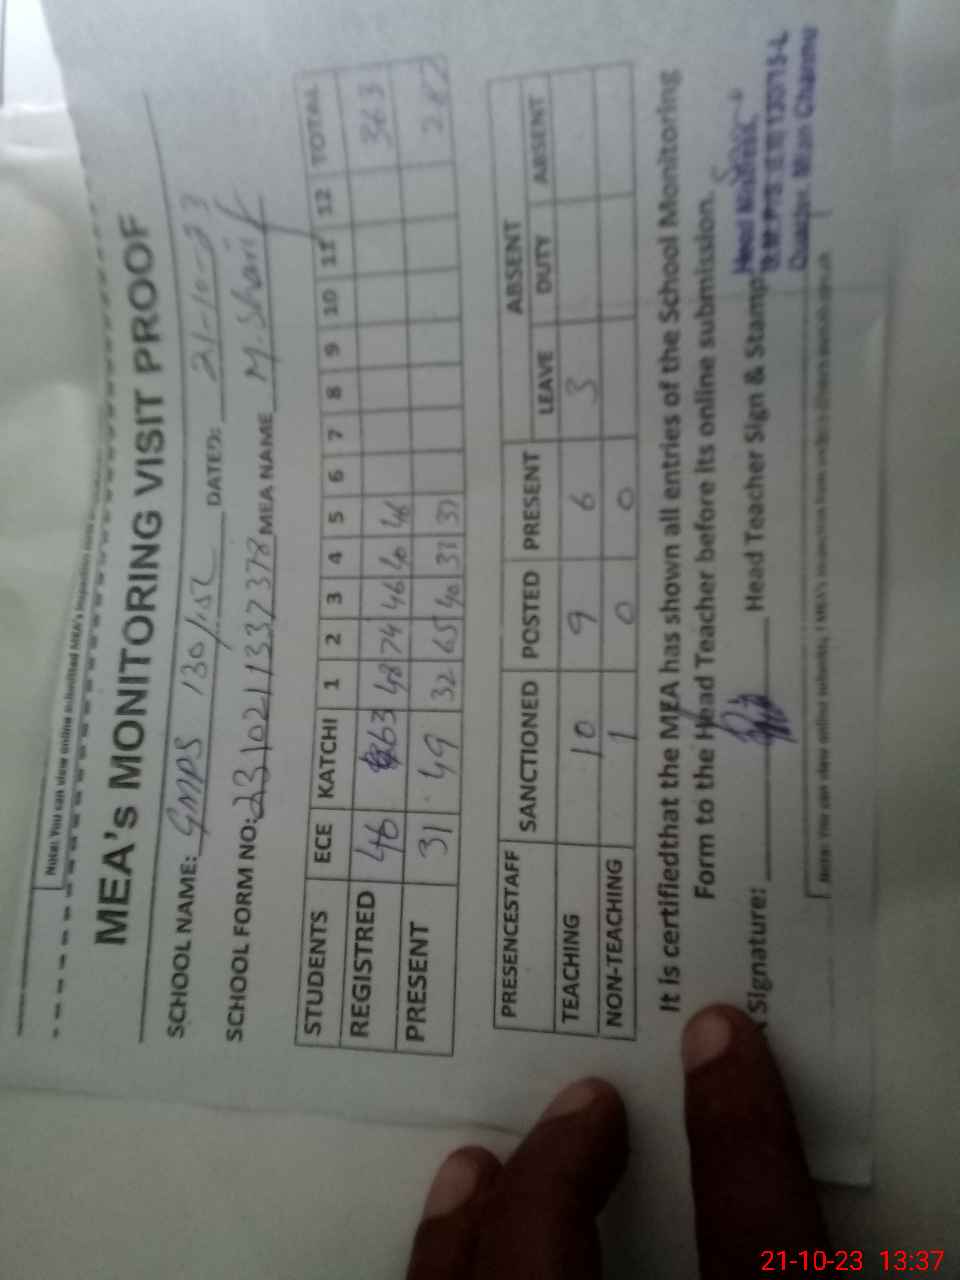 Note: You can view online submitted MEA's
MEA's MONITORING VISIT PROOF
SCHOOL NAME: GMPS 130/15L DATED: 21-10-23
SCHOOL FORM NO: MEA NAME M. Sharif
STUDENTS ECE KATCHI 1 2 3 4 5 6 7 8 9 10 11 12 TOTAL
REGISTRED 46 63 48 74 46 40 46 363
PRESENT 31 49 32 65 40 33
PRESENCESTAFF SANCTIONED POSTED PRESENT ABSENT
LEAVE DUTY ABSENT
TEACHING 10 9 6 3
NON-TEACHING 1 0 0
It is certifiedthat the MEA has shown all entries of the School Monitoring
Form to the Head Teacher before its online submission.
Signature: Head Teacher Sign & Stamp
Mian Channu
Note: You can view online
21-10-23 13:37